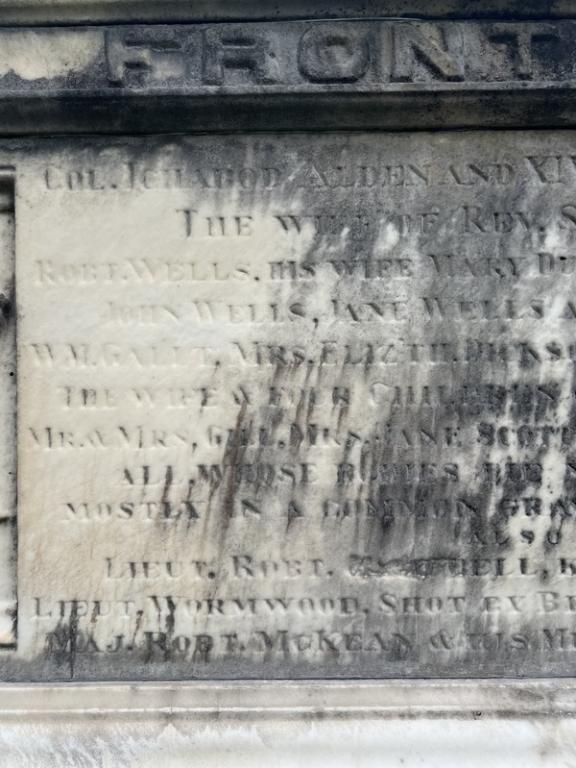 FRONT
COL. ICHABOD ALDEN AND XIV
THE WIFE OF REV. S
ROBT. WELLS, HIS WIFE MARY DU
JOHN WELLS, JANE WELLS A
WM. GALLT, MRS. ELIZTH. DICKSO
THE WIFE & FOUR CHILDREN
MR. & MRS, GILL, MRS. JANE SCOTT
ALL, WHOSE BODIES LIE
MOSTLY IN A COMMON GRA
ALSO
LIEUT. ROBT. K
LIEUT. WORMWOOD, SHOT BY B
MAJ. ROBT. MCKEAN & HIS M